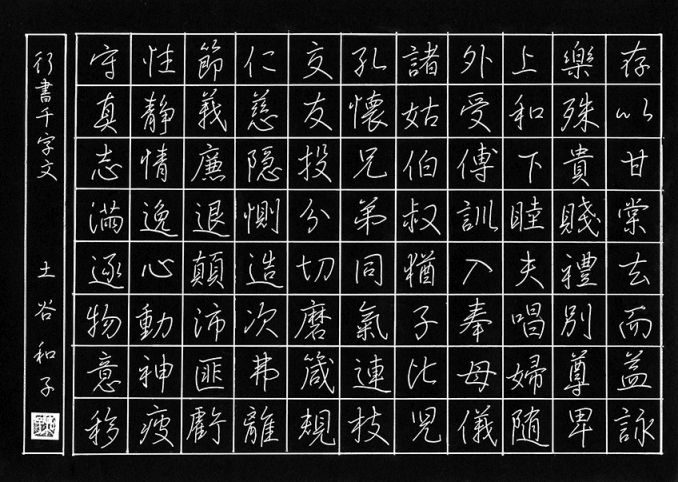 存以甘棠去而益詠
樂殊貴賤禮別尊卑
上和下睦夫唱婦随
外受傅訓入奉母儀
諸姑伯叔猶子比児
孔懐兄弟同氣連枝
交友投分切磨箴規
仁慈隠惻造次弗離
節義廉退顛沛匪虧
性静情逸心動神疲
守真志満逐物意移
行書千字文 土谷和子